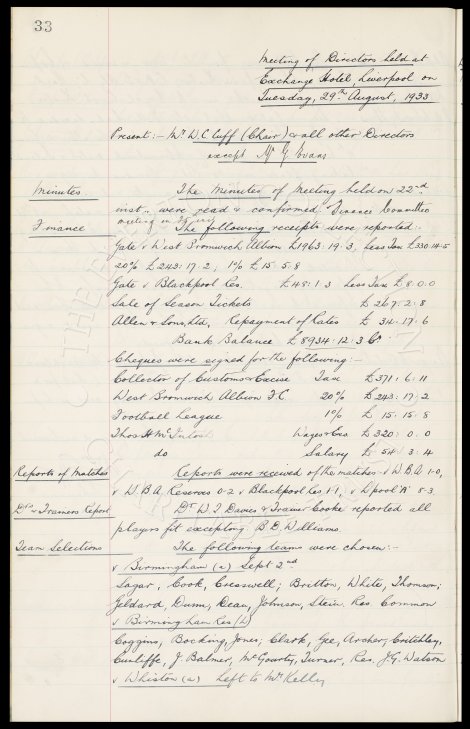 33
Meeting of Directors held at
Exchange Hotel, Liverpool on
Tuesday, 29th August, 1933
Present:- Mr W.C. Cuff (Chair) & all other Directors
except Mr G Evans
Minutes.
The Minutes of Meeting held on 22nd
inst. were read & confirmed. Finance Committee
meeting
Finance
The following receipts were reported:-
Gate v West Bromwich Albion £1963.19.3, Less Tax £330.14.5
20% £243.17.2, 1% £15.5.8
Gate v Blackpool Res. £48.1.3 Less Tax £8.0.0
Sale of Season Tickets £267.2.8
Allen & Sons, Ltd, Repayment of Rates £34.17.6
Bank Balance £8934.12.3 Cr
Cheques were signed for the following:-
Collector of Customs & Excise Tax £371.6.11
West Bromwich Albion F.C 20% £243.17.2
Football League 1% £15.15.8
Thos H McIntosh Wages & Exs £320.0.0
do Salary £54.3.4
Reports of Matches
Reports were received of the matches v W.B.A. 1-0,
v W.B.A. Reserves 0-2 v Blackpool Res. 1-1, v L'pool 'A' 8-3
Drs & Trainers Report
Dr W.T. Davies & Trainer Cooke reported all
players fit excepting B.D. Williams.
Team Selections
The following teams were chosen:-
v Birmingham (a) Sept 2nd
Sagar, Cook, Cresswell; Britton, White, Thomson;
Geldard, Dunn, Dean, Johnson, Stein. Res. Common
v Birmingham Res (h)
Coggins, Bocking, Jones; Clark, Gee, Archer; Critchley,
Cunliffe, J. Balmer, McGourty, Turner, Res. J.G. Watson
v Whiston (a) Left to Mr Kelly